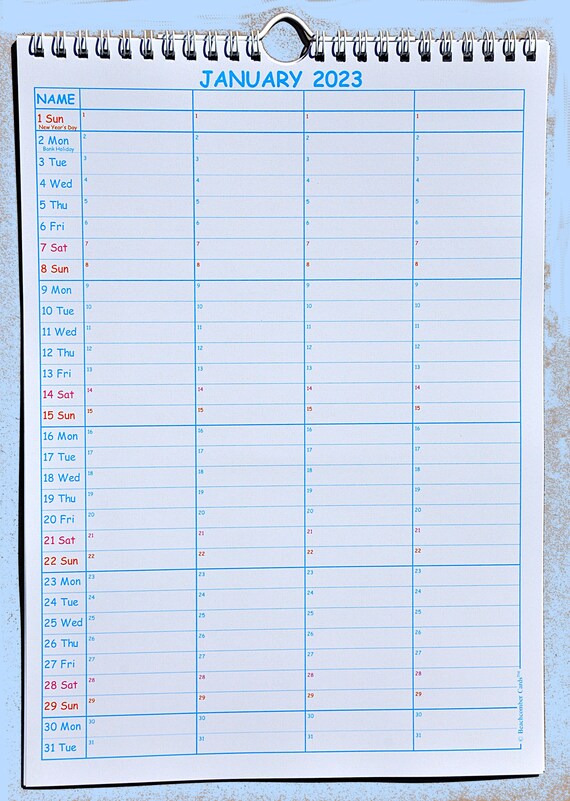 JANUARY 2023
NAME
1 Sun 1 1 1 1
New Year's Day
2 Mon 2 2 2 2
Bank Holiday
3 Tue 3 3 3 3
4 Wed 4 4 4 4
5 Thu 5 5 5 5
6 Fri 6 6 6 6
7 Sat 7 7 7 7
8 Sun 8 8 8 8
9 Mon 9 9 9 9
10 Tue 10 10 10 10
11 Wed 11 11 11 11
12 Thu 12 12 12 12
13 Fri 13 13 13 13
14 Sat 14 14 14 14
15 Sun 15 15 15 15
16 Mon 16 16 16 16
17 Tue 17 17 17 17
18 Wed 18 18 18 18
19 Thu 19 19 19 19
20 Fri 20 20 20 20
21 Sat 21 21 21 21
22 Sun 22 22 22 22
23 Mon 23 23 23 23
24 Tue 24 24 24 24
25 Wed 25 25 25 25
26 Thu 26 26 26 26
27 Fri 27 27 27 27
28 Sat 28 28 28 28
29 Sun 29 29 29 29
30 Mon 30 30 30 30
31 Tue 31 31 31 31
© Beachcomber Cards™